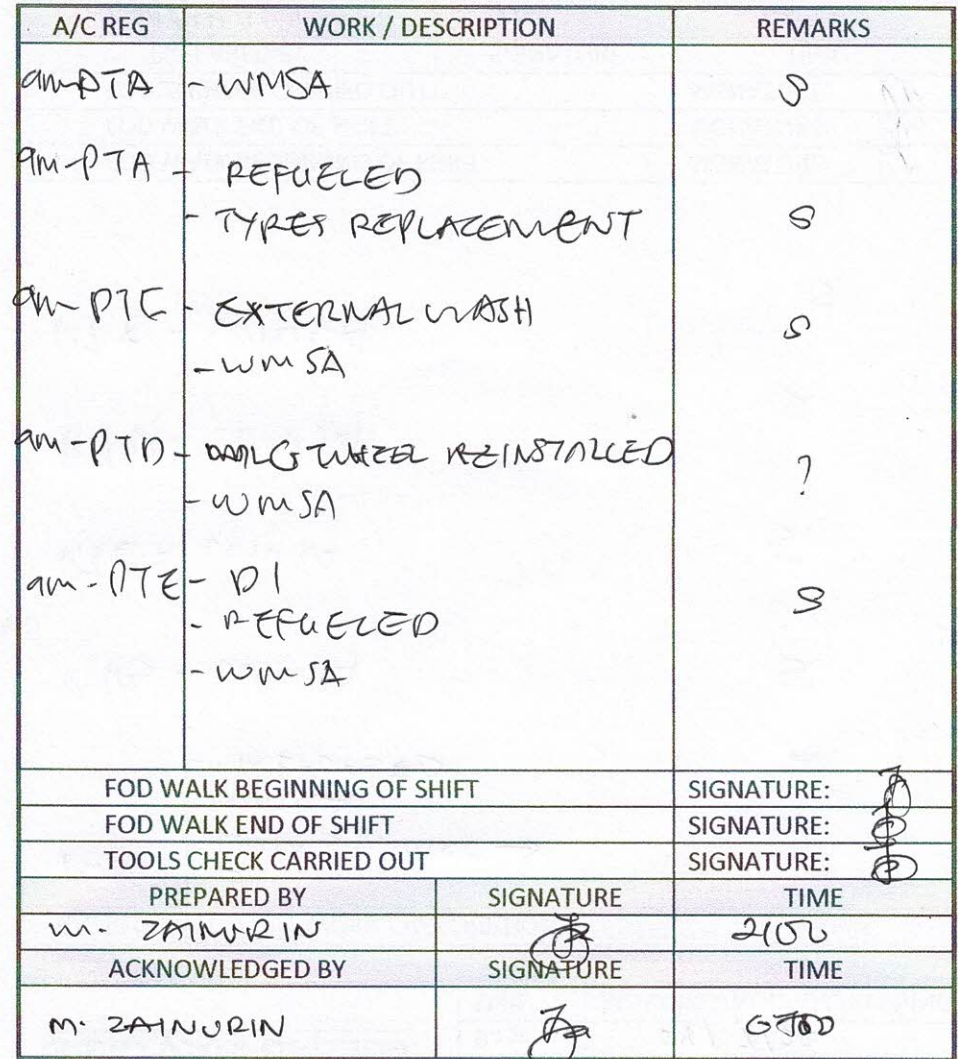 A/C REG WORK / DESCRIPTION REMARKS
9M-PTA - WMSA S
9M-PTA - REFUELED
- TYRES REPLACEMENT S
9M-PTC - EXTERNAL WASH S
- WMSA
9M-PTD - WHEEL REINSTALLED ?
- WMSA
9M-PTE - DI S
- REFUELED
- WMSA
FOD WALK BEGINNING OF SHIFT SIGNATURE:
FOD WALK END OF SHIFT SIGNATURE:
TOOLS CHECK CARRIED OUT SIGNATURE:
PREPARED BY SIGNATURE TIME
M. ZAINURIN 2100
ACKNOWLEDGED BY SIGNATURE TIME
M. ZAINURIN